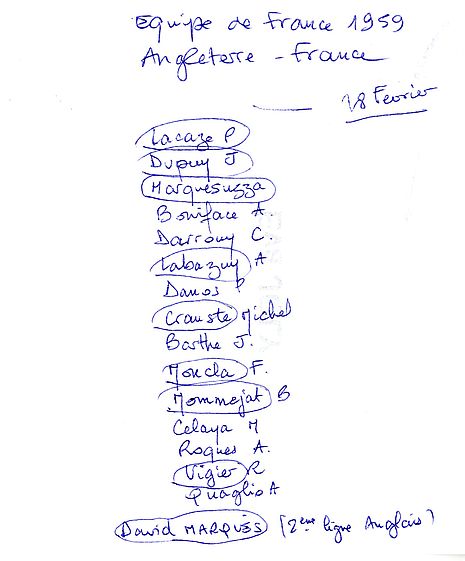 Equipe de France 1959
Angleterre - France
28 Fevrier
Lacaze P
Dupuy J
Marquesuzza
Boniface A.
Darrouy C.
Labazuy A
Danos P
Crauste Michel
Barthe J.
Moncla F.
Mommejat B
Celaya M
Roques A.
Vigier R
Quaglio A
David MARQUÈS (2ème ligne Anglais)